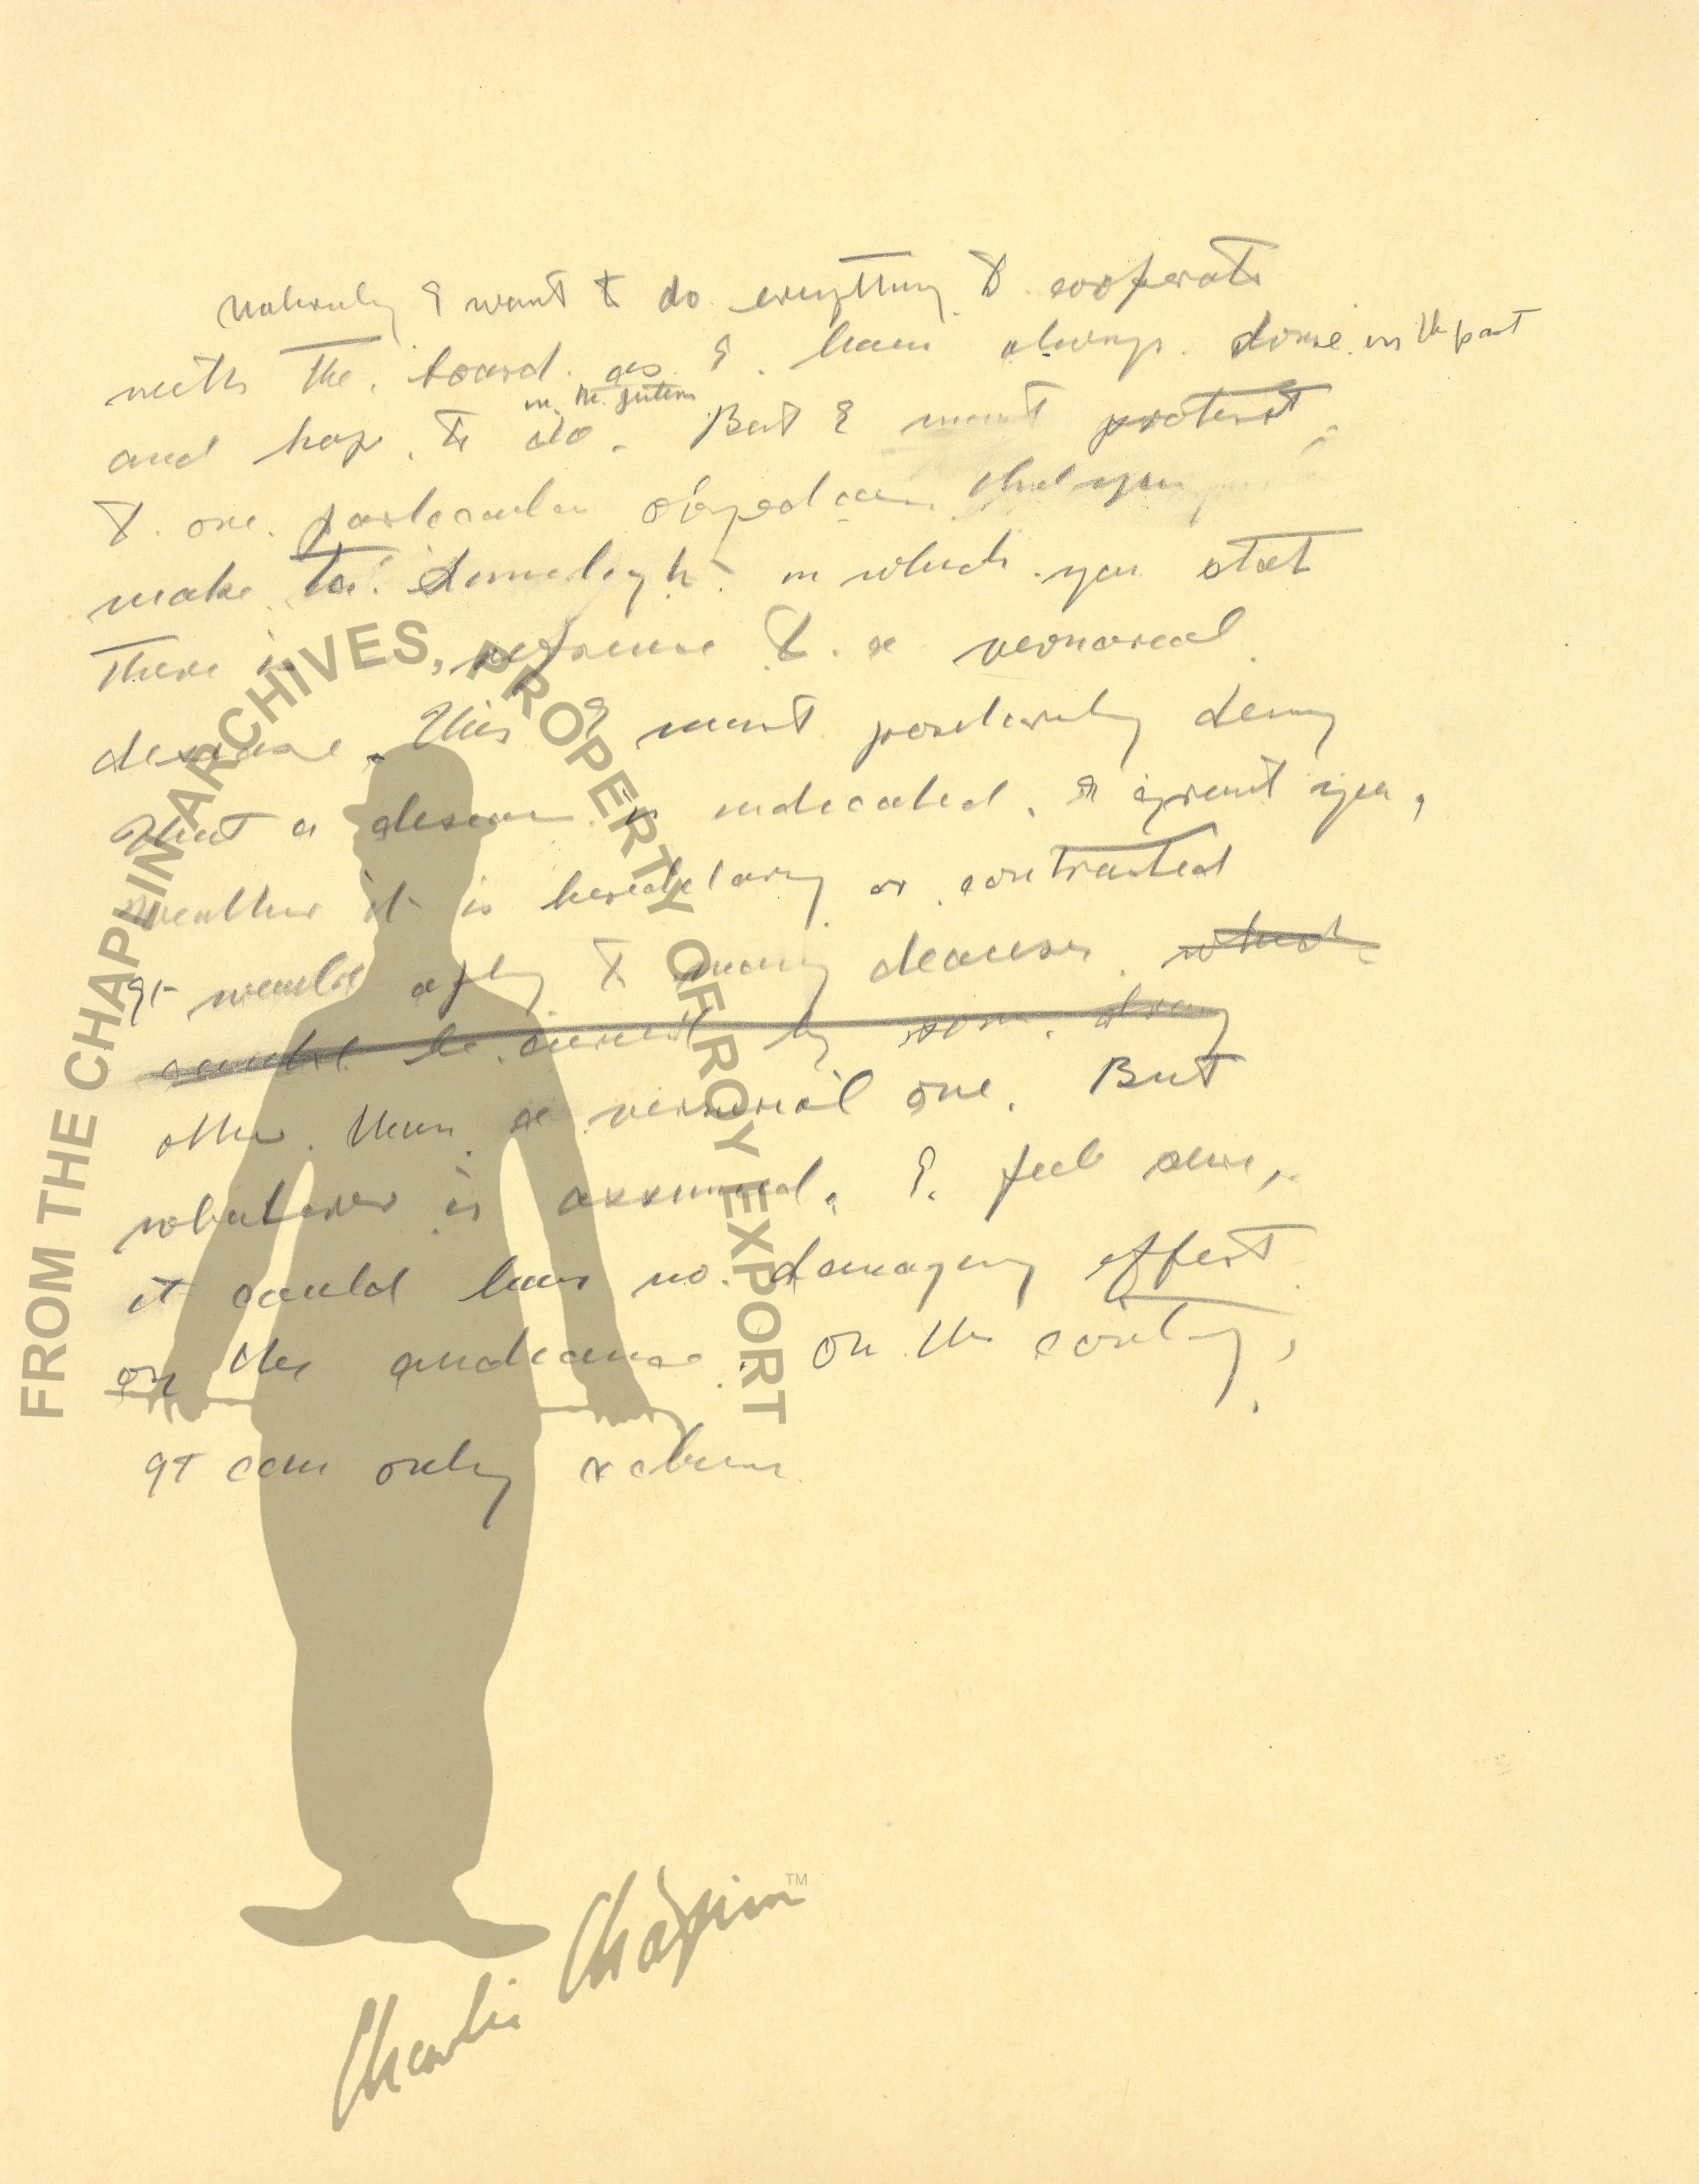 Naturaly I want to do everything to cooperate
with the board. as I have always done in the past
in the future
and hope to do. But I must protest
to one particular objection that you
make to Limelight in which you state
There is refrence to a vernareal
desease. This I must positively deny
That a desease is indicated, I grant you,
weather it is heredetary or contracted
It would aply to many deaeases. which
could be by some
other than a venereal one. But
whatever is assumed, I feel sure,
it could have no damaging effect
on the audience. On the contry,
It can only
FROM THE CHAPLIN ARCHIVES, PROPERTY OF ROY EXPORT
Charlie Chaplin™